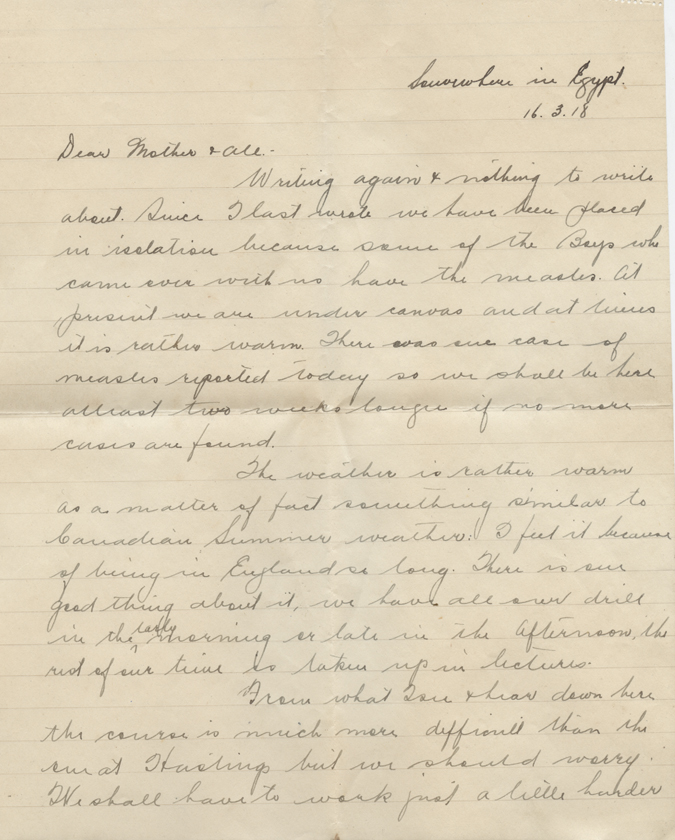 Somewhere in Egypt.
16.3.18
Dear Mother & all.-
Writing again & nothing to write
about. Since I last wrote we have been placed
in isolation because some of the Boys who
came over with us have the measles. At
present we are under canvas and at times
it is rather warm. There was one case of
measles reported today so we shall be here
atleast two weeks longer if no more
cases are found.
The weather is rather warm
as a matter of fact something similar to
Canadian Summer weather. I feel it because
of being in England so long. There is one
good thing about it, we have all our drill
in the early morning or late in the Afternoon, the
rest of our time is taken up in lectures.
From what I see & hear down here
the course is much more difficult than the
one at Hastings but we should worry.
We shall have to work just a little harder